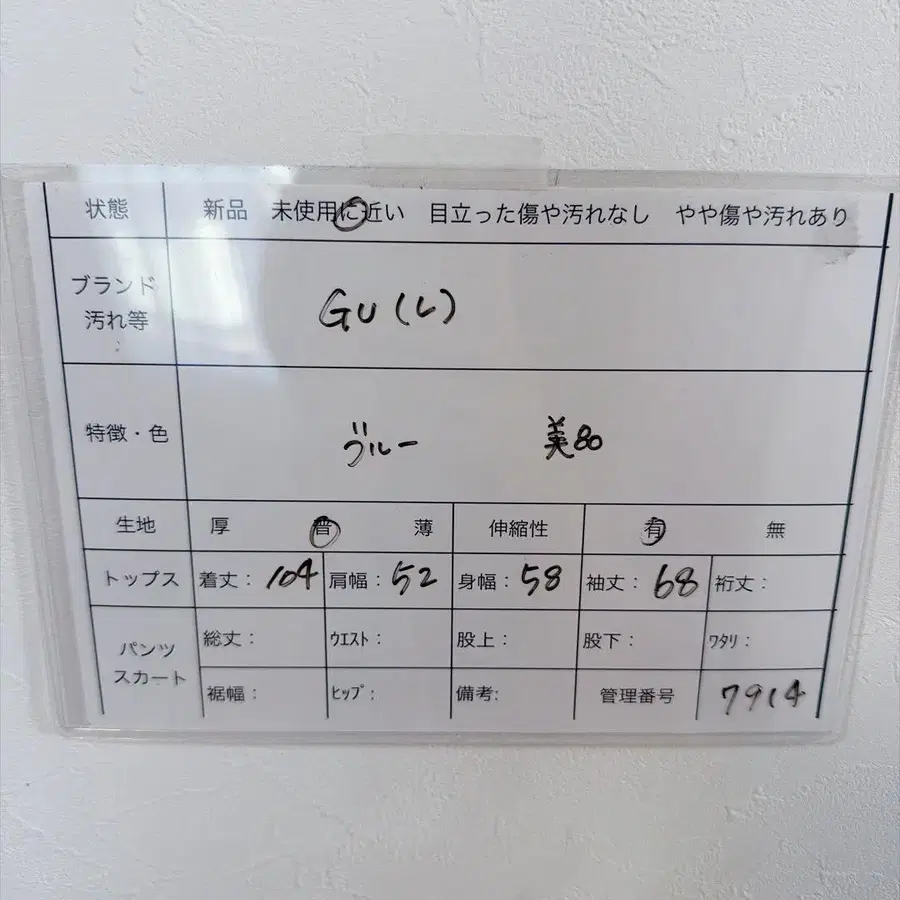 状態 新品 未使用に近い 目立った傷や汚れなし やや傷や汚れあり
ブランド
汚れ等
GU(L)
特徴・色 ブルー 美80
生地 厚 普 薄 伸縮性 有 無
トップス 着丈: 104 肩幅: 52 身幅: 58 袖丈: 68 裄丈:
パンツ
スカート
総丈: ｳｴｽﾄ: 股上: 股下: ﾜﾀﾘ:
裾幅: ﾋｯﾌﾟ: 備考: 管理番号 7914